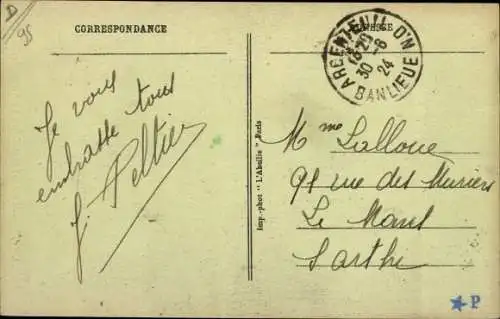 D
95
CORRESPONDANCE
ADRESSE
ARGENTEUIL D'N
18 20
30 - 6
24
BANLIEUE
Je vous
embrasse tous
J. Peltier
Imp.-phot "L'Abeille" Paris
Mme Lalloue
91 rue des Muriers
Le Mans
Sarthe
P